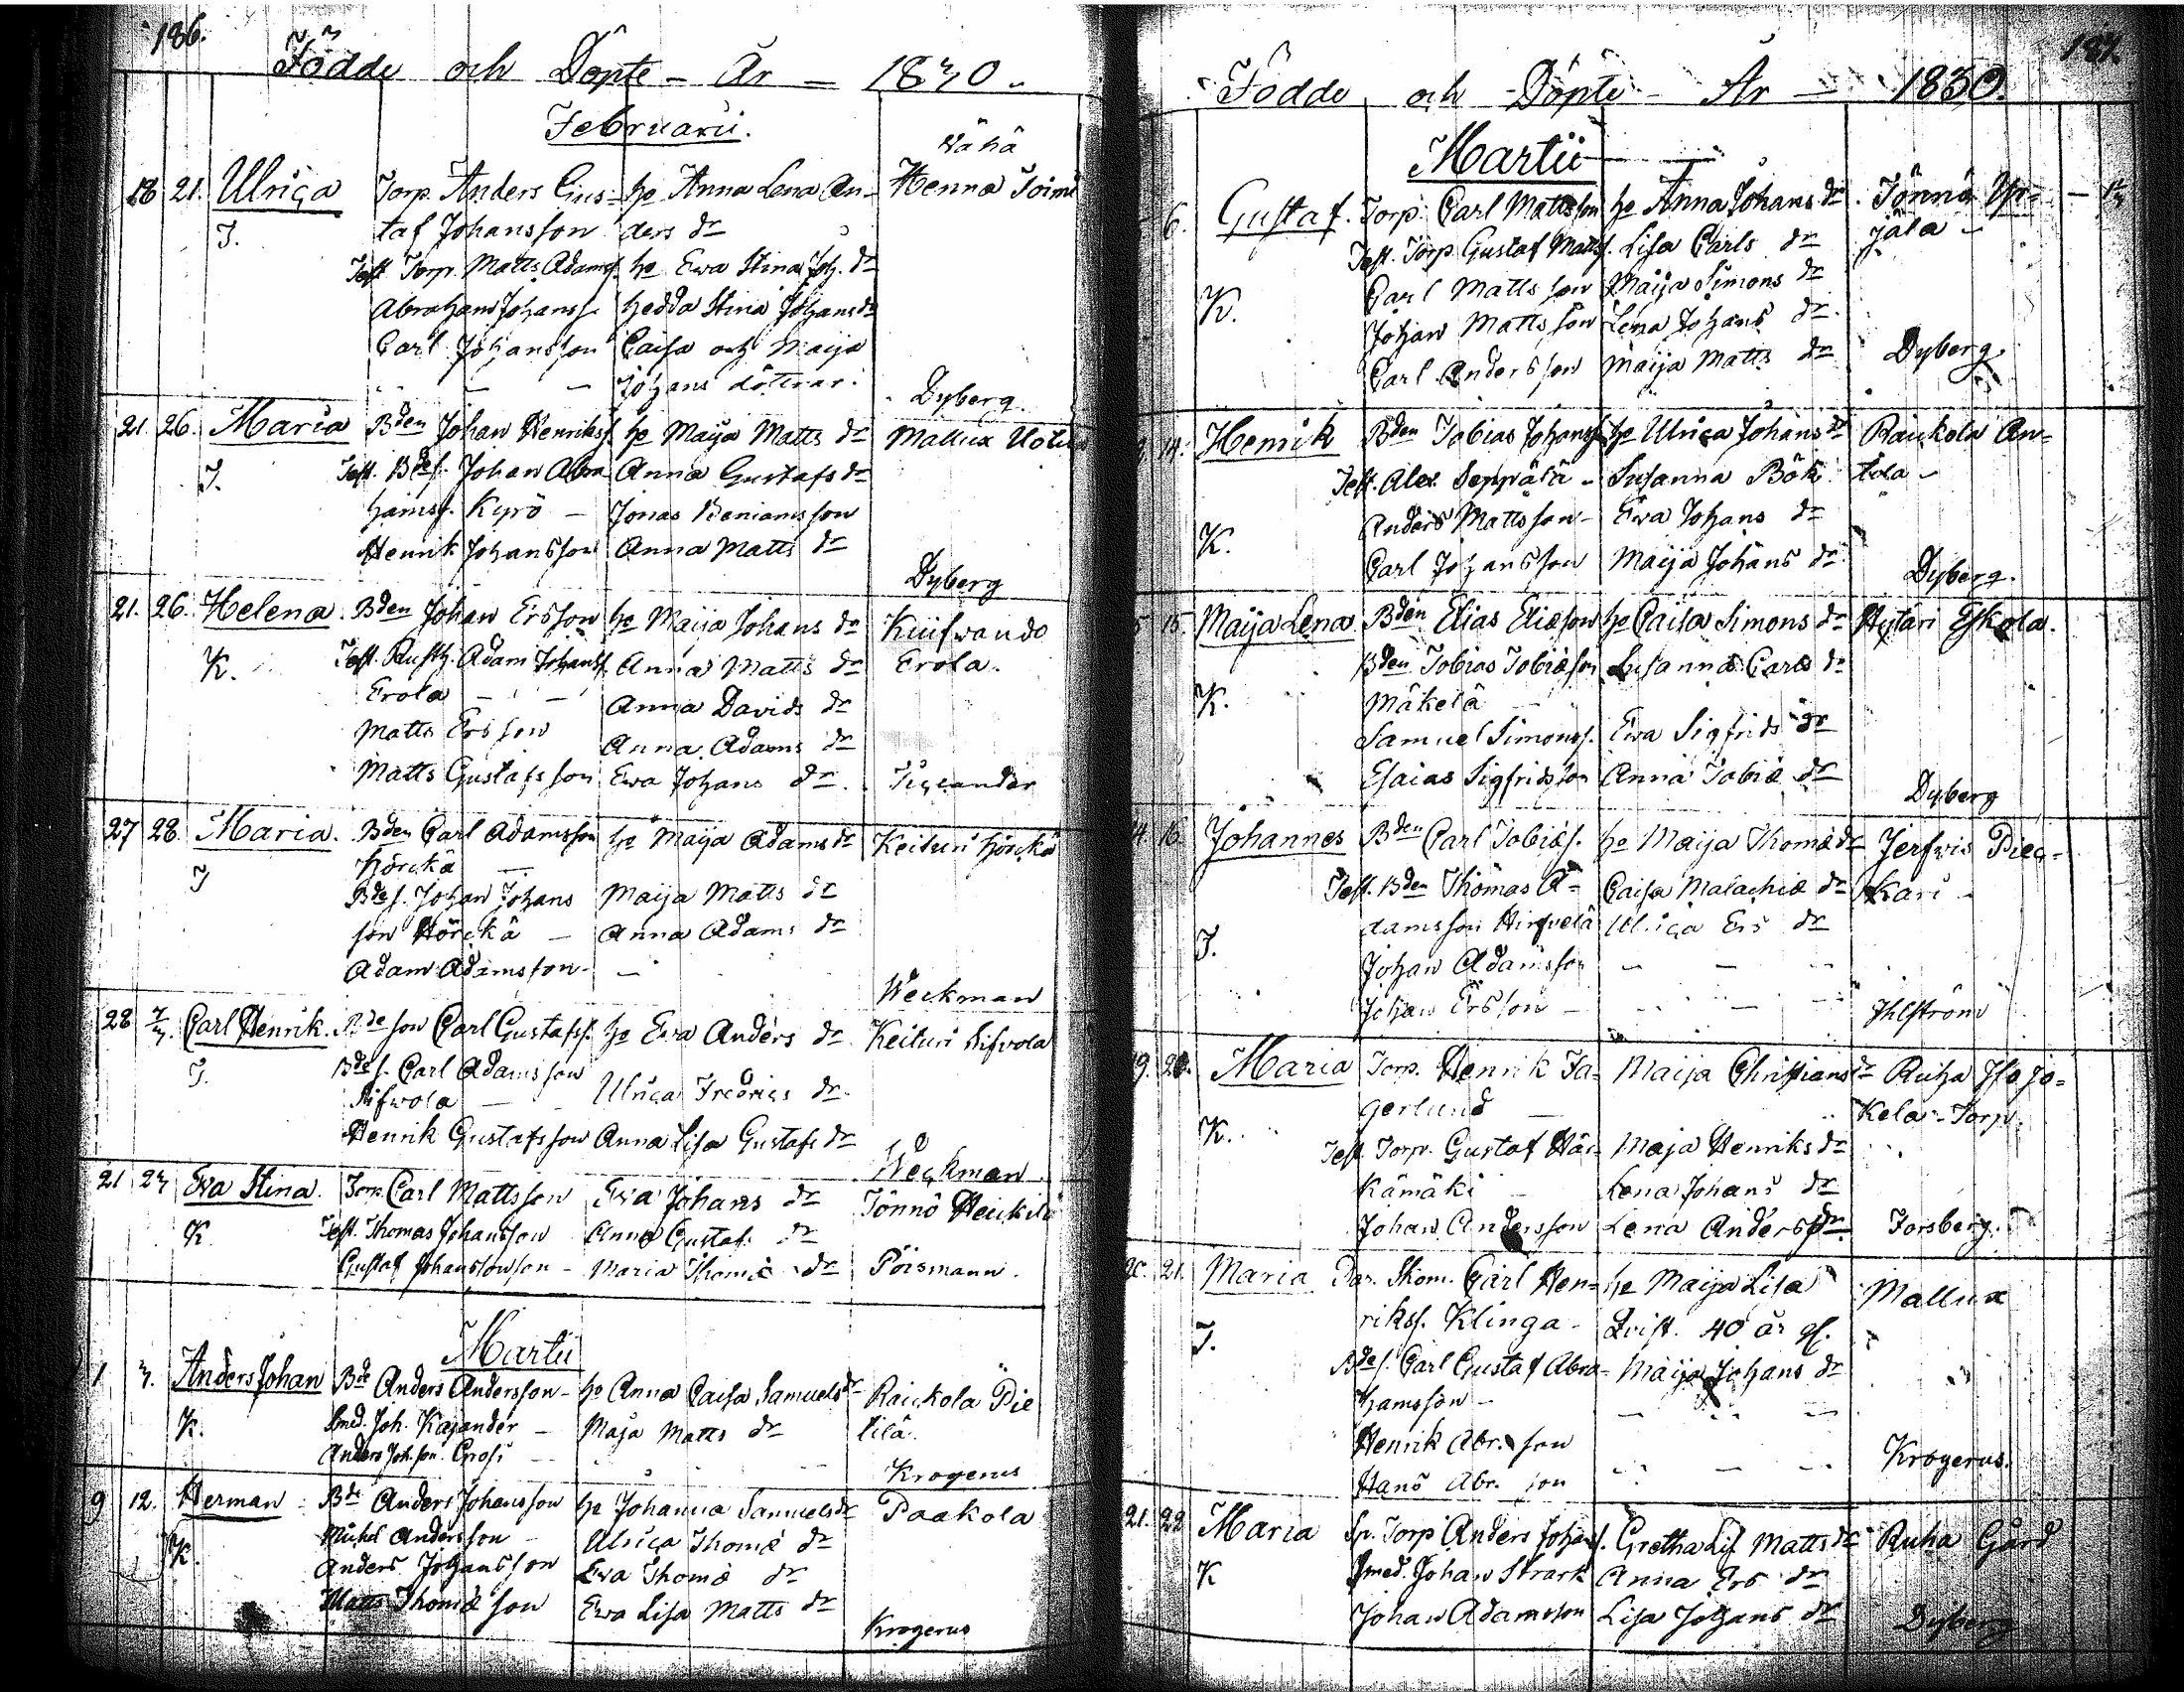 186.
Födde och Döpte - År - 1830.
Februarii.
Wähä
18 21. Ulrica Torp. Anders Gus- h. Anna Lena An- Henna Toimi
T. taf Johansson ders dr
Test. Torp. Matts Adamss. h. Ewa Stina Joh. dr
Abraham Johanss. Hedda Stina Johans dr
Carl Johansson Caisa och Maija
- - - Johans döttrar. Dyberg
21. 26. Maria Bden Johan Henrikss. h. Maija Matts dr Mallux
T. Test. Bdes. Johan Abra- Anna Gustafs dr
hamss. Kyrö - Jonas Beniamsson
Henrik Johansson Anna Matts dr
Dyberg
21. 26. Helena. Bden Johan Ersson h. Maija Johans dr Kuifwando
K. Test. Rusth. Adam Johanss. Anna Matts dr Erola.
Erola - - Anna Davids dr
Matts Ersson Anna Adams dr
Matts Gustafsson Ewa Johans dr. Ticcander
27 28. Maria. Bden Carl Adamsson h. Maija Adams dr Keituri Hörckä
T Hörckä -
Bdes. Johan Johans Maija Matts dr
son Hörckä - Anna Adams dr
Adam Adamsson - -
Weckman
28 7/3. Carl Henrik. Bdeson Carl Gustafss. h. Ewa Anders dr Keituri Sifvola
T. Bdes. Carl Adamsson
Sifwola - Ulrica Fredrics dr
Henrik Gustafsson Anna Lisa Gustafs dr
Weckman
21 23 Ewa Stina. Torp. Carl Mattsson Ewa Johans dr Tönnö Heickilä
K. Test. Thomas Johansson Anna Gustafs dr
Gustaf Johansson - Maria Thomæ dr Poismann.
Martii
1 3. Anders Johan Bde Anders Andersson - h. Anna Caisa Samuels dr Raickola Pie
K. Smed. Joh. Kajander - Maja Matts dr tilä.
Anders Joh.son
Krogerus
9 12. Herman - Bde Anders Johansson h. Johanna Samuels dr Paakola
K. Michel Andersson - Ulrica Thomæ dr
Anders Johansson Ewa Thomæ dr
Matts Thomæ son Ewa Lisa Matts dr
Krogerus
187.
Födde och Döpte - År - 1830.
Martii
6. Gustaf. Torp. Carl Mattsson h. Anna Johans dr. Tönnö Yr-
Test. Torp. Gustaf Matts. Lisa Carls dr jälä -
K. Carl Mattsson Maija Simons dr
Johan Mattsson Lena Johans dr.
Carl Andersson Maija Matts dr Dyberg
14. Henrik Bden Tobias Johanss. h. Ulrica Johans dr Raickola An-
Test. Alex. Seppälä - Susanna Böök tola -
K. Anders Mattsson - Ewa Johans dr
Carl Johansson Maija Johans dr Dyberg.
15. Maija Lena Bden Elias Eliæson h. Caisa Simons dr Hytäri Eskola.
Bden Tobias Tobiæson Susanna Carls dr
K. Mäkelä
Samuel Simonss. Ewa Sigfrids dr
Esaias Sigfridsson Anna Tobiæ dr
Dyberg
14. 16. Johannes Bden Carl Tobiæs. h. Maija Thomæ dr Jerfvis Piec-
Test. Bden Thomas A- Caisa Malachiæ dr kari -
T. damsson Hirfvelä Ulrica Ers dr
Johan Adamsson - - -
Johan Ersson - - - - Ihlström
19. 20. Maria Torp. Henrik Fa- Maija Christians dr Ruha Iso Jo-
gerlund - kela - Torp.
K. Test. Torp. Gustaf Här- Maja Henriks dr
kämäki Lena Johans dr
Johan Andersson Lena Anders dr Forsberg.
20. 21. Maria Par. Skom. Carl Hen- h. Maija Lisa Mallux
T. rikss. Klinga - Qvist. 40 år gl.
Bdes. Carl Gustaf Abra- Maija Johans dr
hamsson - - - -
Henrik Abr. son
Hans Abr. son - - - Krogerus.
21. 22 Maria Sp. Torp Anders Johans. Gretha Lis Matts dr Ruha Gård
K Smed. Johan Strark Anna Ers dr
Johan Adamsson Lisa Johans dr Dyberg